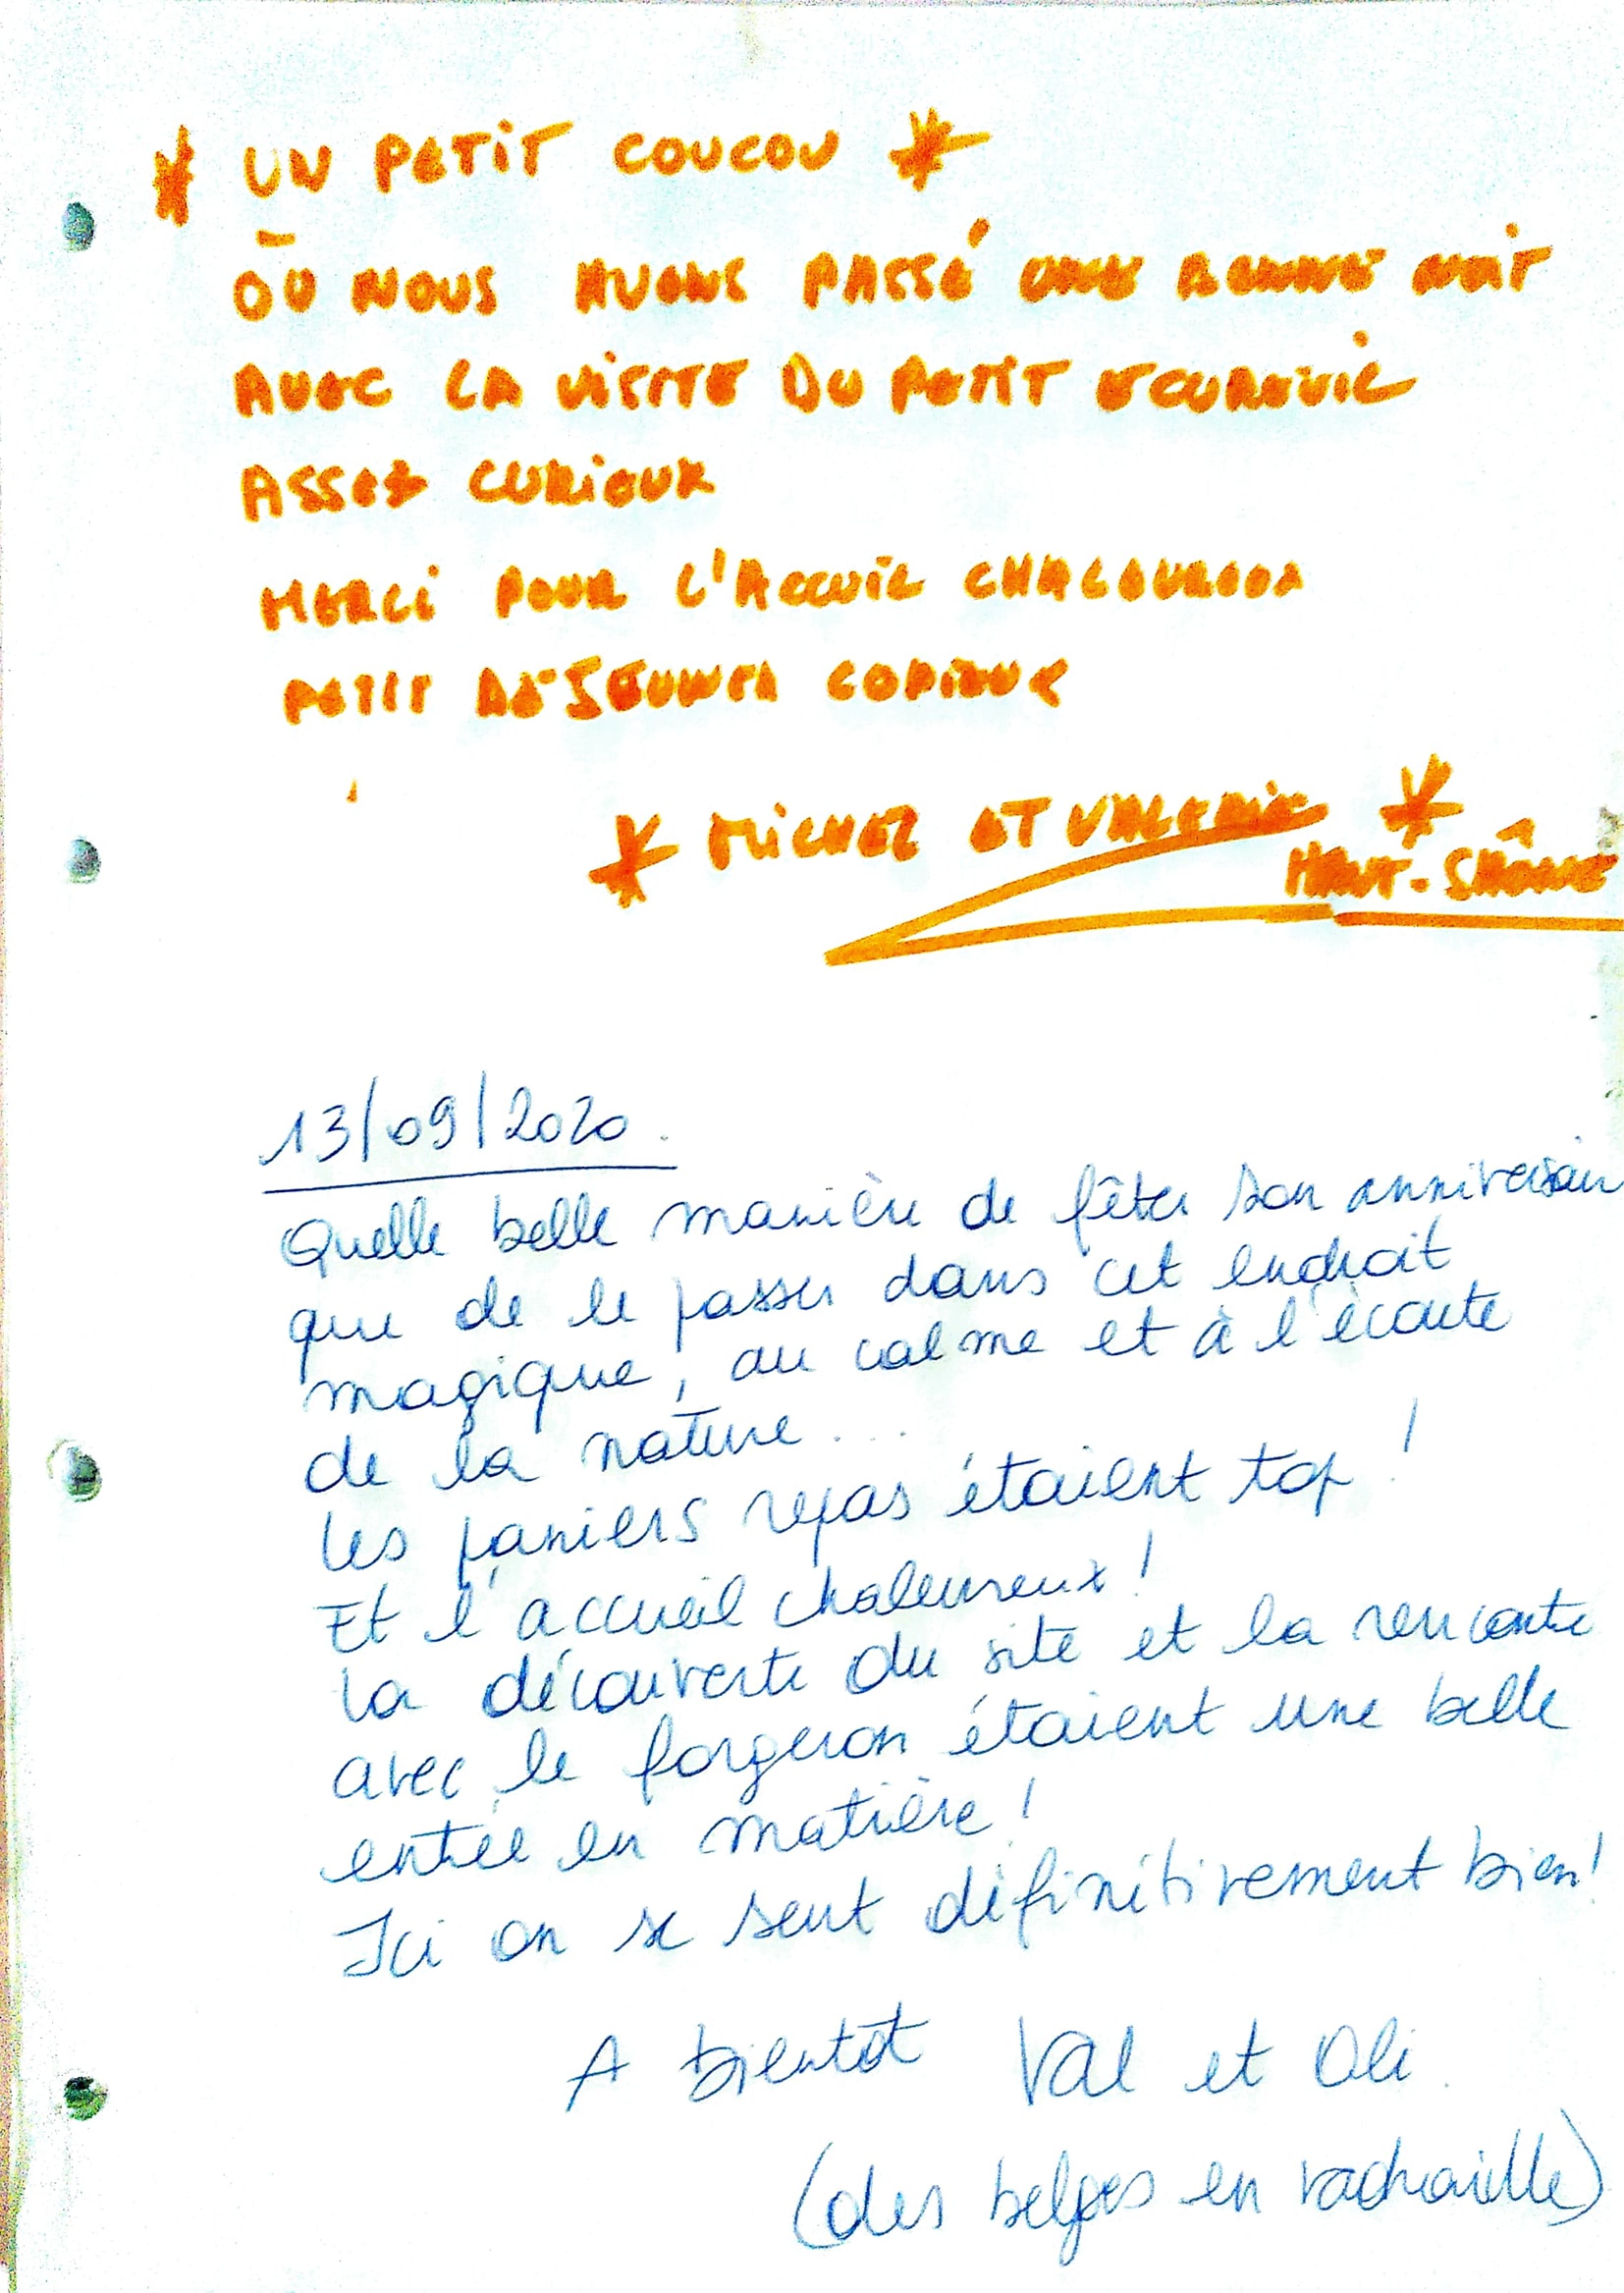 * UN PETIT COUCOU *
OÙ NOUS AVONS PASSÉ UNE BONNE NUIT
AVEC LA VISITE DU PETIT ECUREUIL
ASSEZ CURIEUX
MERCI POUR L'ACCUIL
PETIT DÉJEUNER COPIEUX
* MICHEL ET VALERIE *
HAUT-SAÔNE
13/09/2020.
Quelle belle manière de fêter son anniversaire
que de le passer dans cet endroit
magique, au calme et à l'écoute
de la nature...
Les paniers repas étaient top !
Et l'accueil chaleureux !
La découverte du site et la rencontre
avec le forgeron étaient une belle
entrée en matière !
Ici on se sent définitivement bien !
A bientôt Val et Oli.
(des belges en vadrouille)